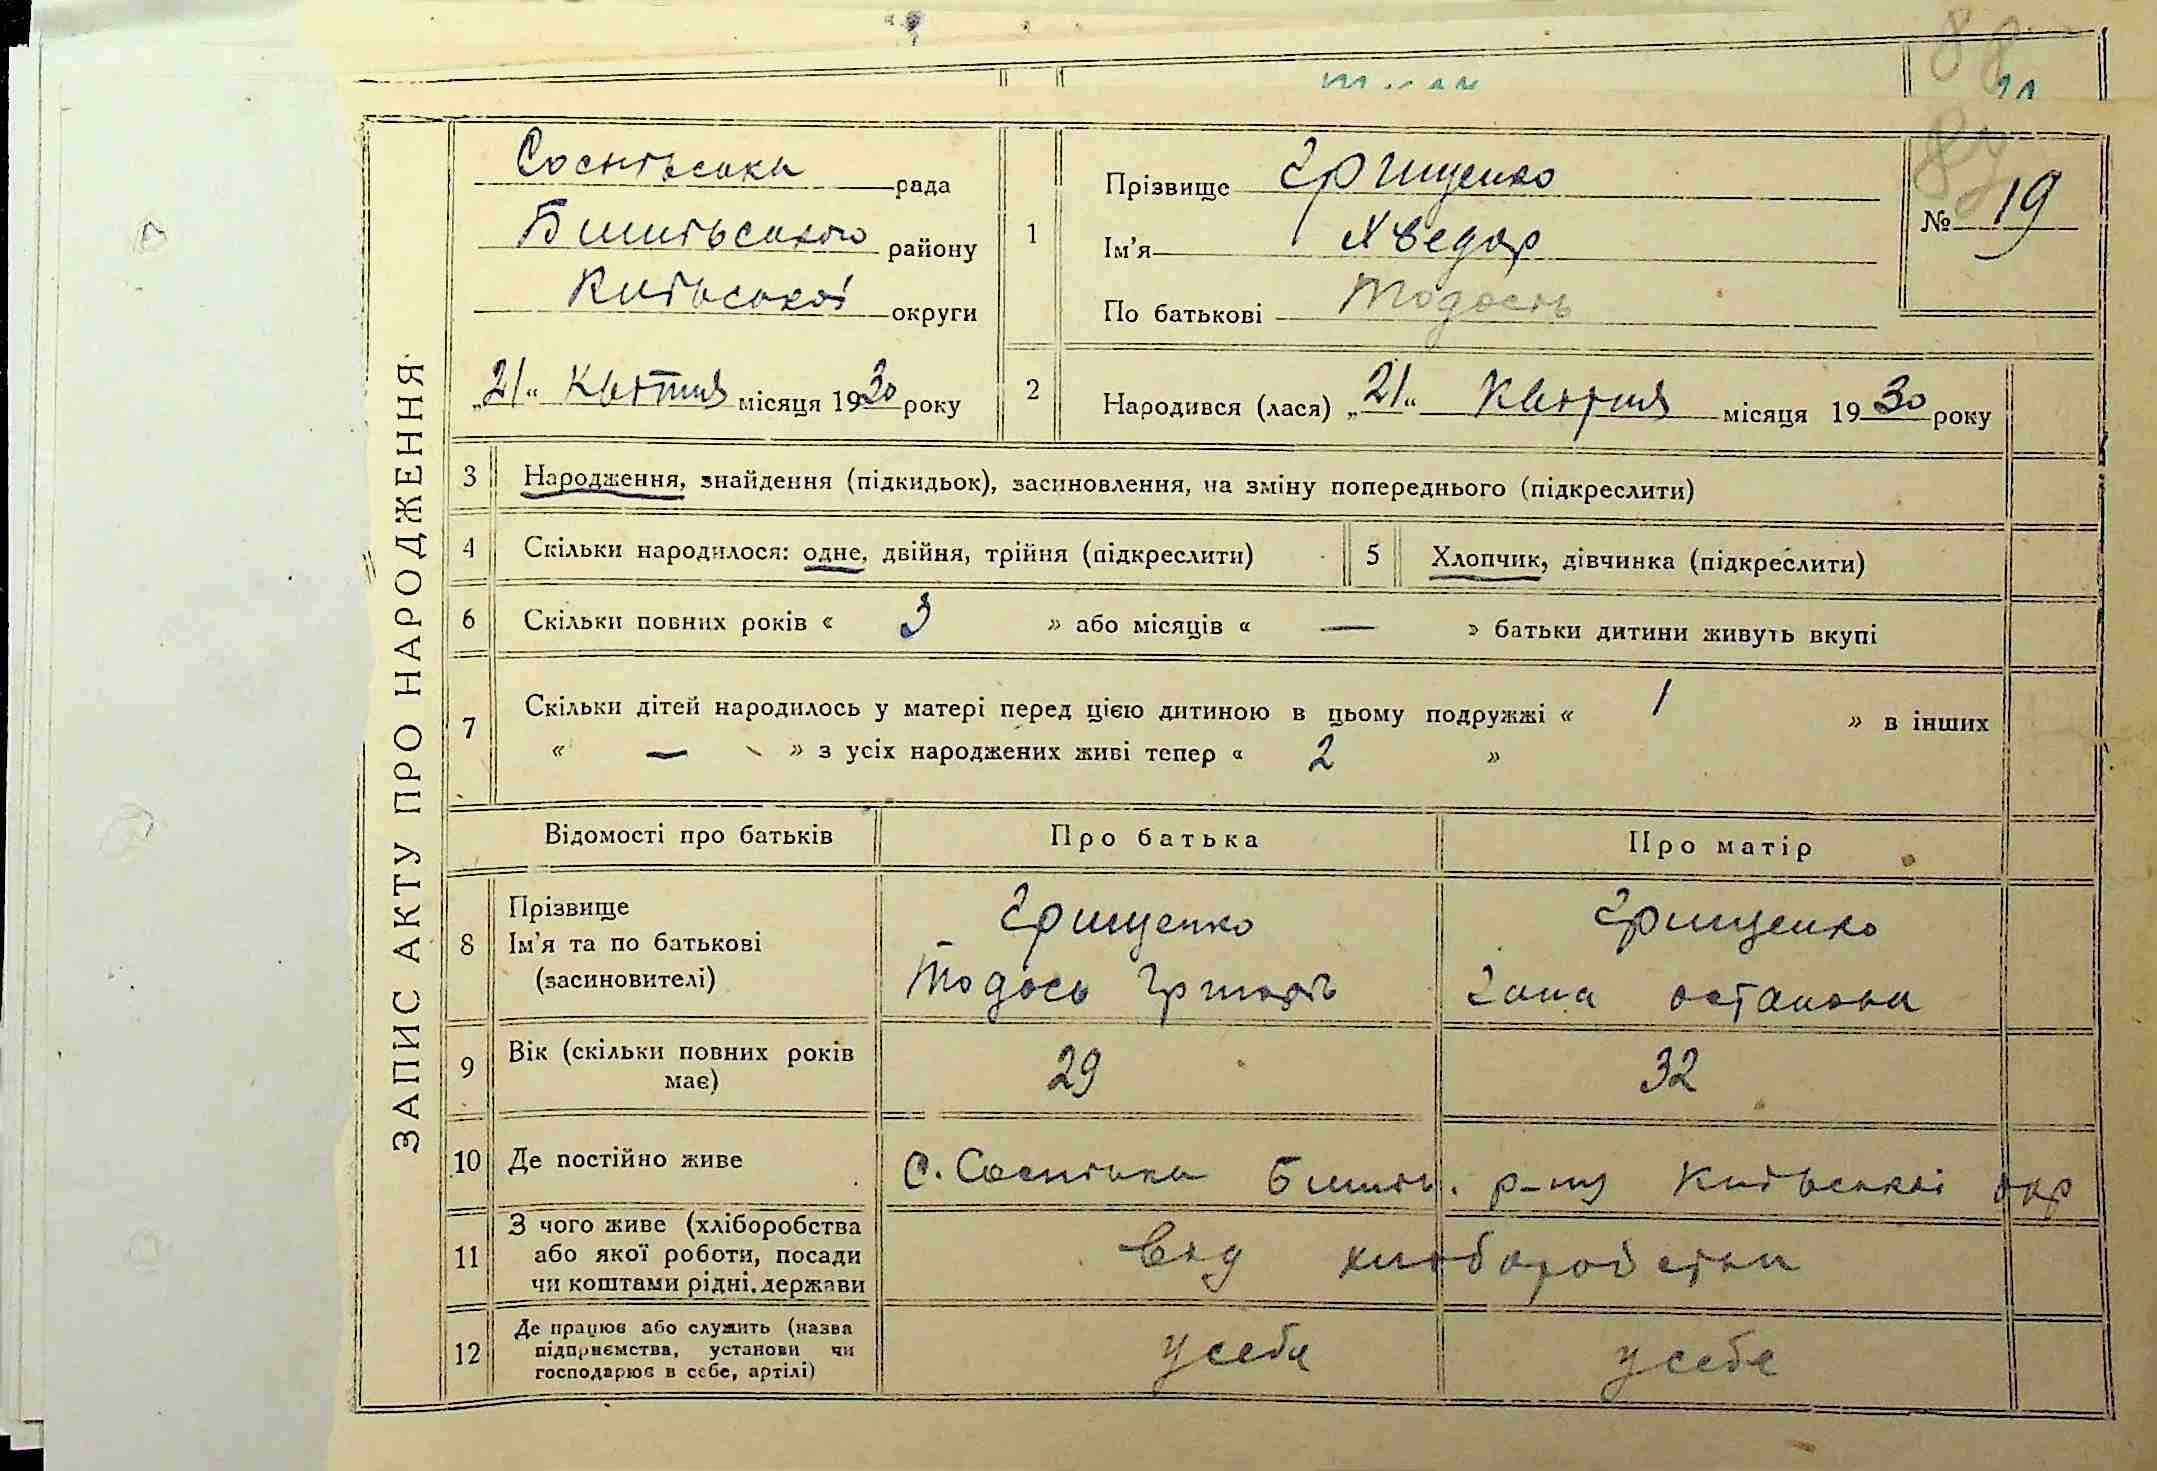 ЗАПИС АКТУ ПРО НАРОДЖЕННЯ
88
89
Соснівська рада
Бишівського району
Київської округи
„21“ Квітня місяця 1930 року
1
Прізвище Грищенко
Ім’я Хведор
По батькові Тодосів
№ 19
2
Народився (лася) „21“ Квітня місяця 1930 року
3 Народження, знайдення (підкидьок), засиновлення, на зміну попереднього (підкреслити)
4 Скільки народилося: одне, двійня, трійня (підкреслити) 5 Хлопчик, дівчинка (підкреслити)
6 Скільки повних років « 3 » або місяців « — » батьки дитини живуть вкупі
7 Скільки дітей народилось у матері перед цією дитиною в цьому подружжі « 1 » в інших
« — » з усіх народжених живі тепер « 2 »
Відомості про батьків Про батька Про матір
8 Прізвище
Ім’я та по батькові
(засиновителі)
Грищенко
Тодось Григорів
Грищенко
Ганна
9 Вік (скільки повних років
має)
29 32
10 Де постійно живе С. Соснівка Бишів. р-ну Київської окр
11 З чого живе (хліборобства
або якої роботи, посади
чи коштами рідні, держави
від хліборобства
12 Де працює або служить (назва
підприємства, установи чи
господарює в себе, артілі)
у себе у себе